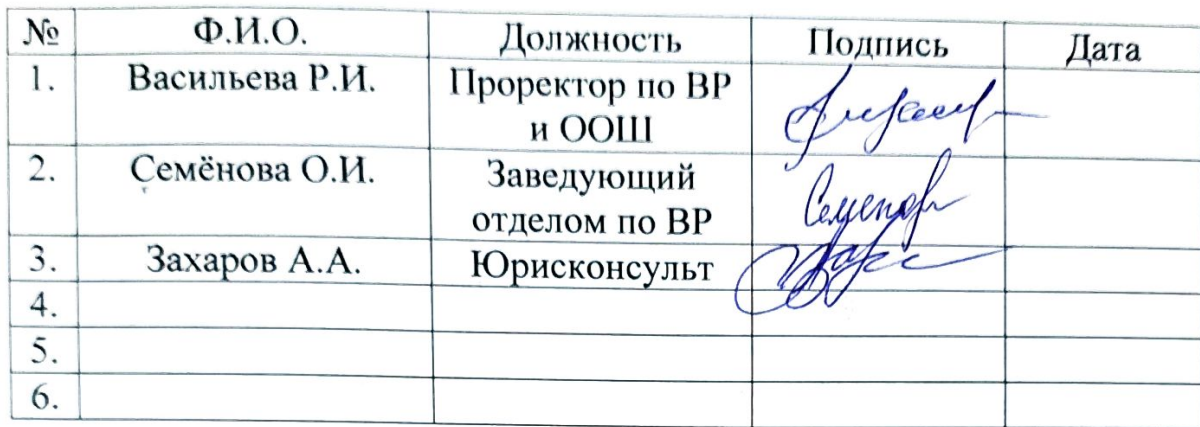 № Ф.И.О. Должность Подпись Дата
1. Васильева Р.И. Проректор по ВР
и ООШ
2. Семёнова О.И. Заведующий
отделом по ВР
3. Захаров А.А. Юрисконсульт
4.
5.
6.